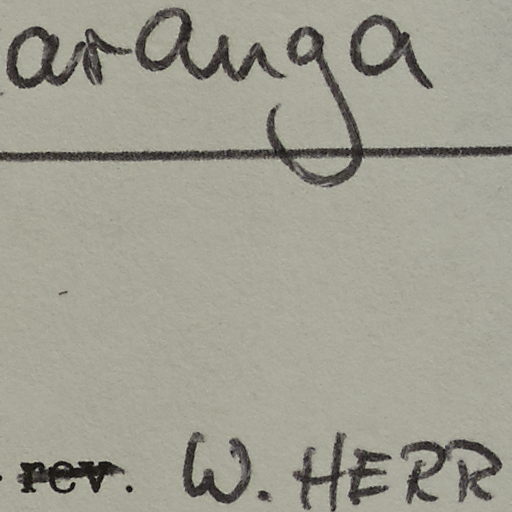 aranga
rev. W. HERR